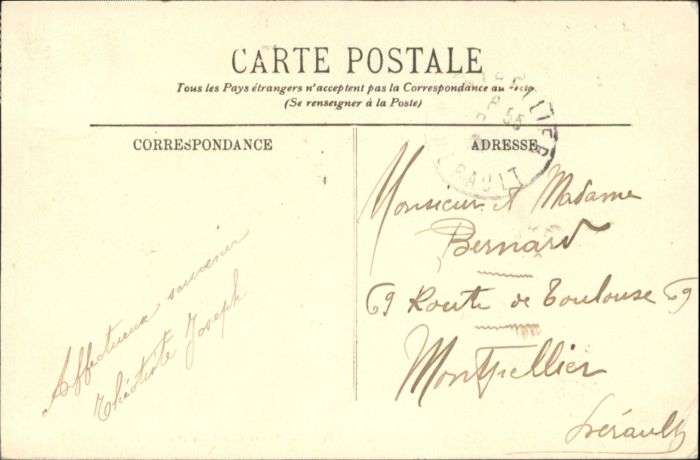 CARTE POSTALE
Tous les Pays étrangers n'acceptent pas la Correspondance au recto.
(Se renseigner à la Poste)
CORRESPONDANCE
Affectueux souvenir
Joseph
ADRESSE
55
RAULT
Monsieur et Madame
Bernard
69 Route de Toulouse 69
Montpellier
Hérault